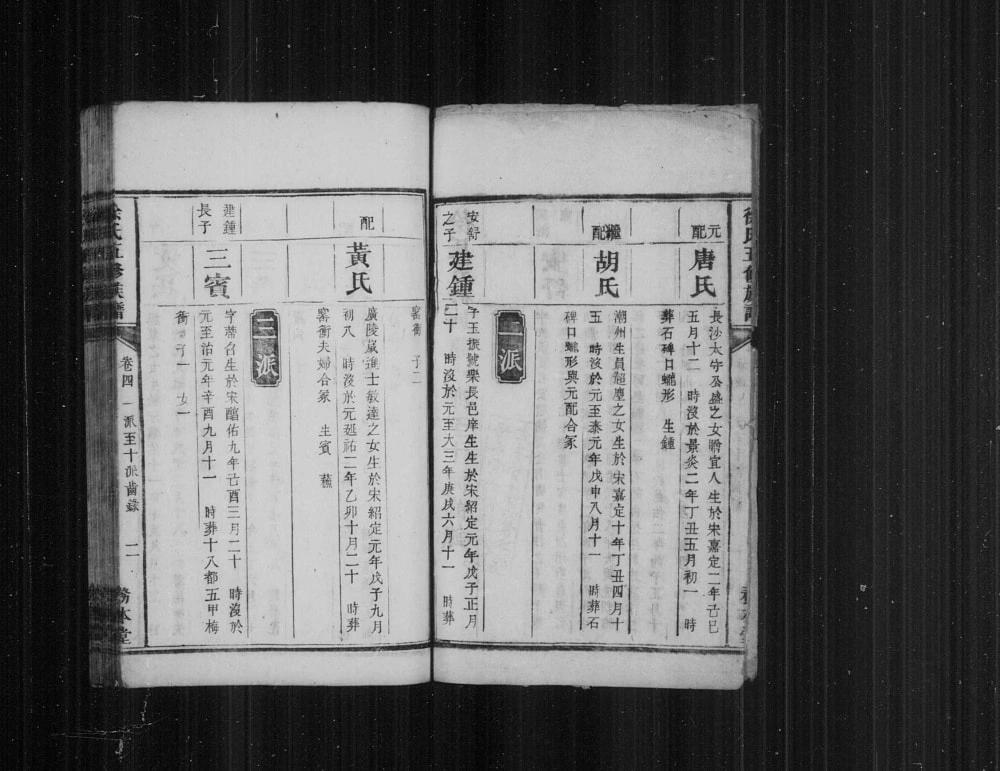 徐氏五修族譜
元配
唐氏
長沙太守公盛之女贈宜人生於宋嘉定二年己巳
五月十二 時沒於景炎二年丁丑五月初一 時
葬石碑口蠟形 生鍾
繼配
胡氏
潮州生員超塵之女生於宋嘉定十年丁丑四月十
五 時沒於元至泰元年戊申八月十一 時葬石
碑口蠟形與元配合冢
二派
安舒之子
建鍾
字玉振號樂長邑庠生生於宋紹定元年戊子正月
二十 時沒於元至大三年庚戌六月十一 時葬
窰衝 子二
配
黃氏
廣陵歲進士敏達之女生於宋紹定元年戊子九月
初八 時沒於元延祐二年乙卯十月二十 時葬
窰衝夫婦合冢 生賓
三派
建鍾長子
三賓
字 召生於宋 佑九年己酉三月二十 時沒於
元至治元年辛酉九月十一 時葬十八都五甲梅
衝 子一 女一
徐氏五修族譜
卷四 一派至十派齒錄
二
務本堂